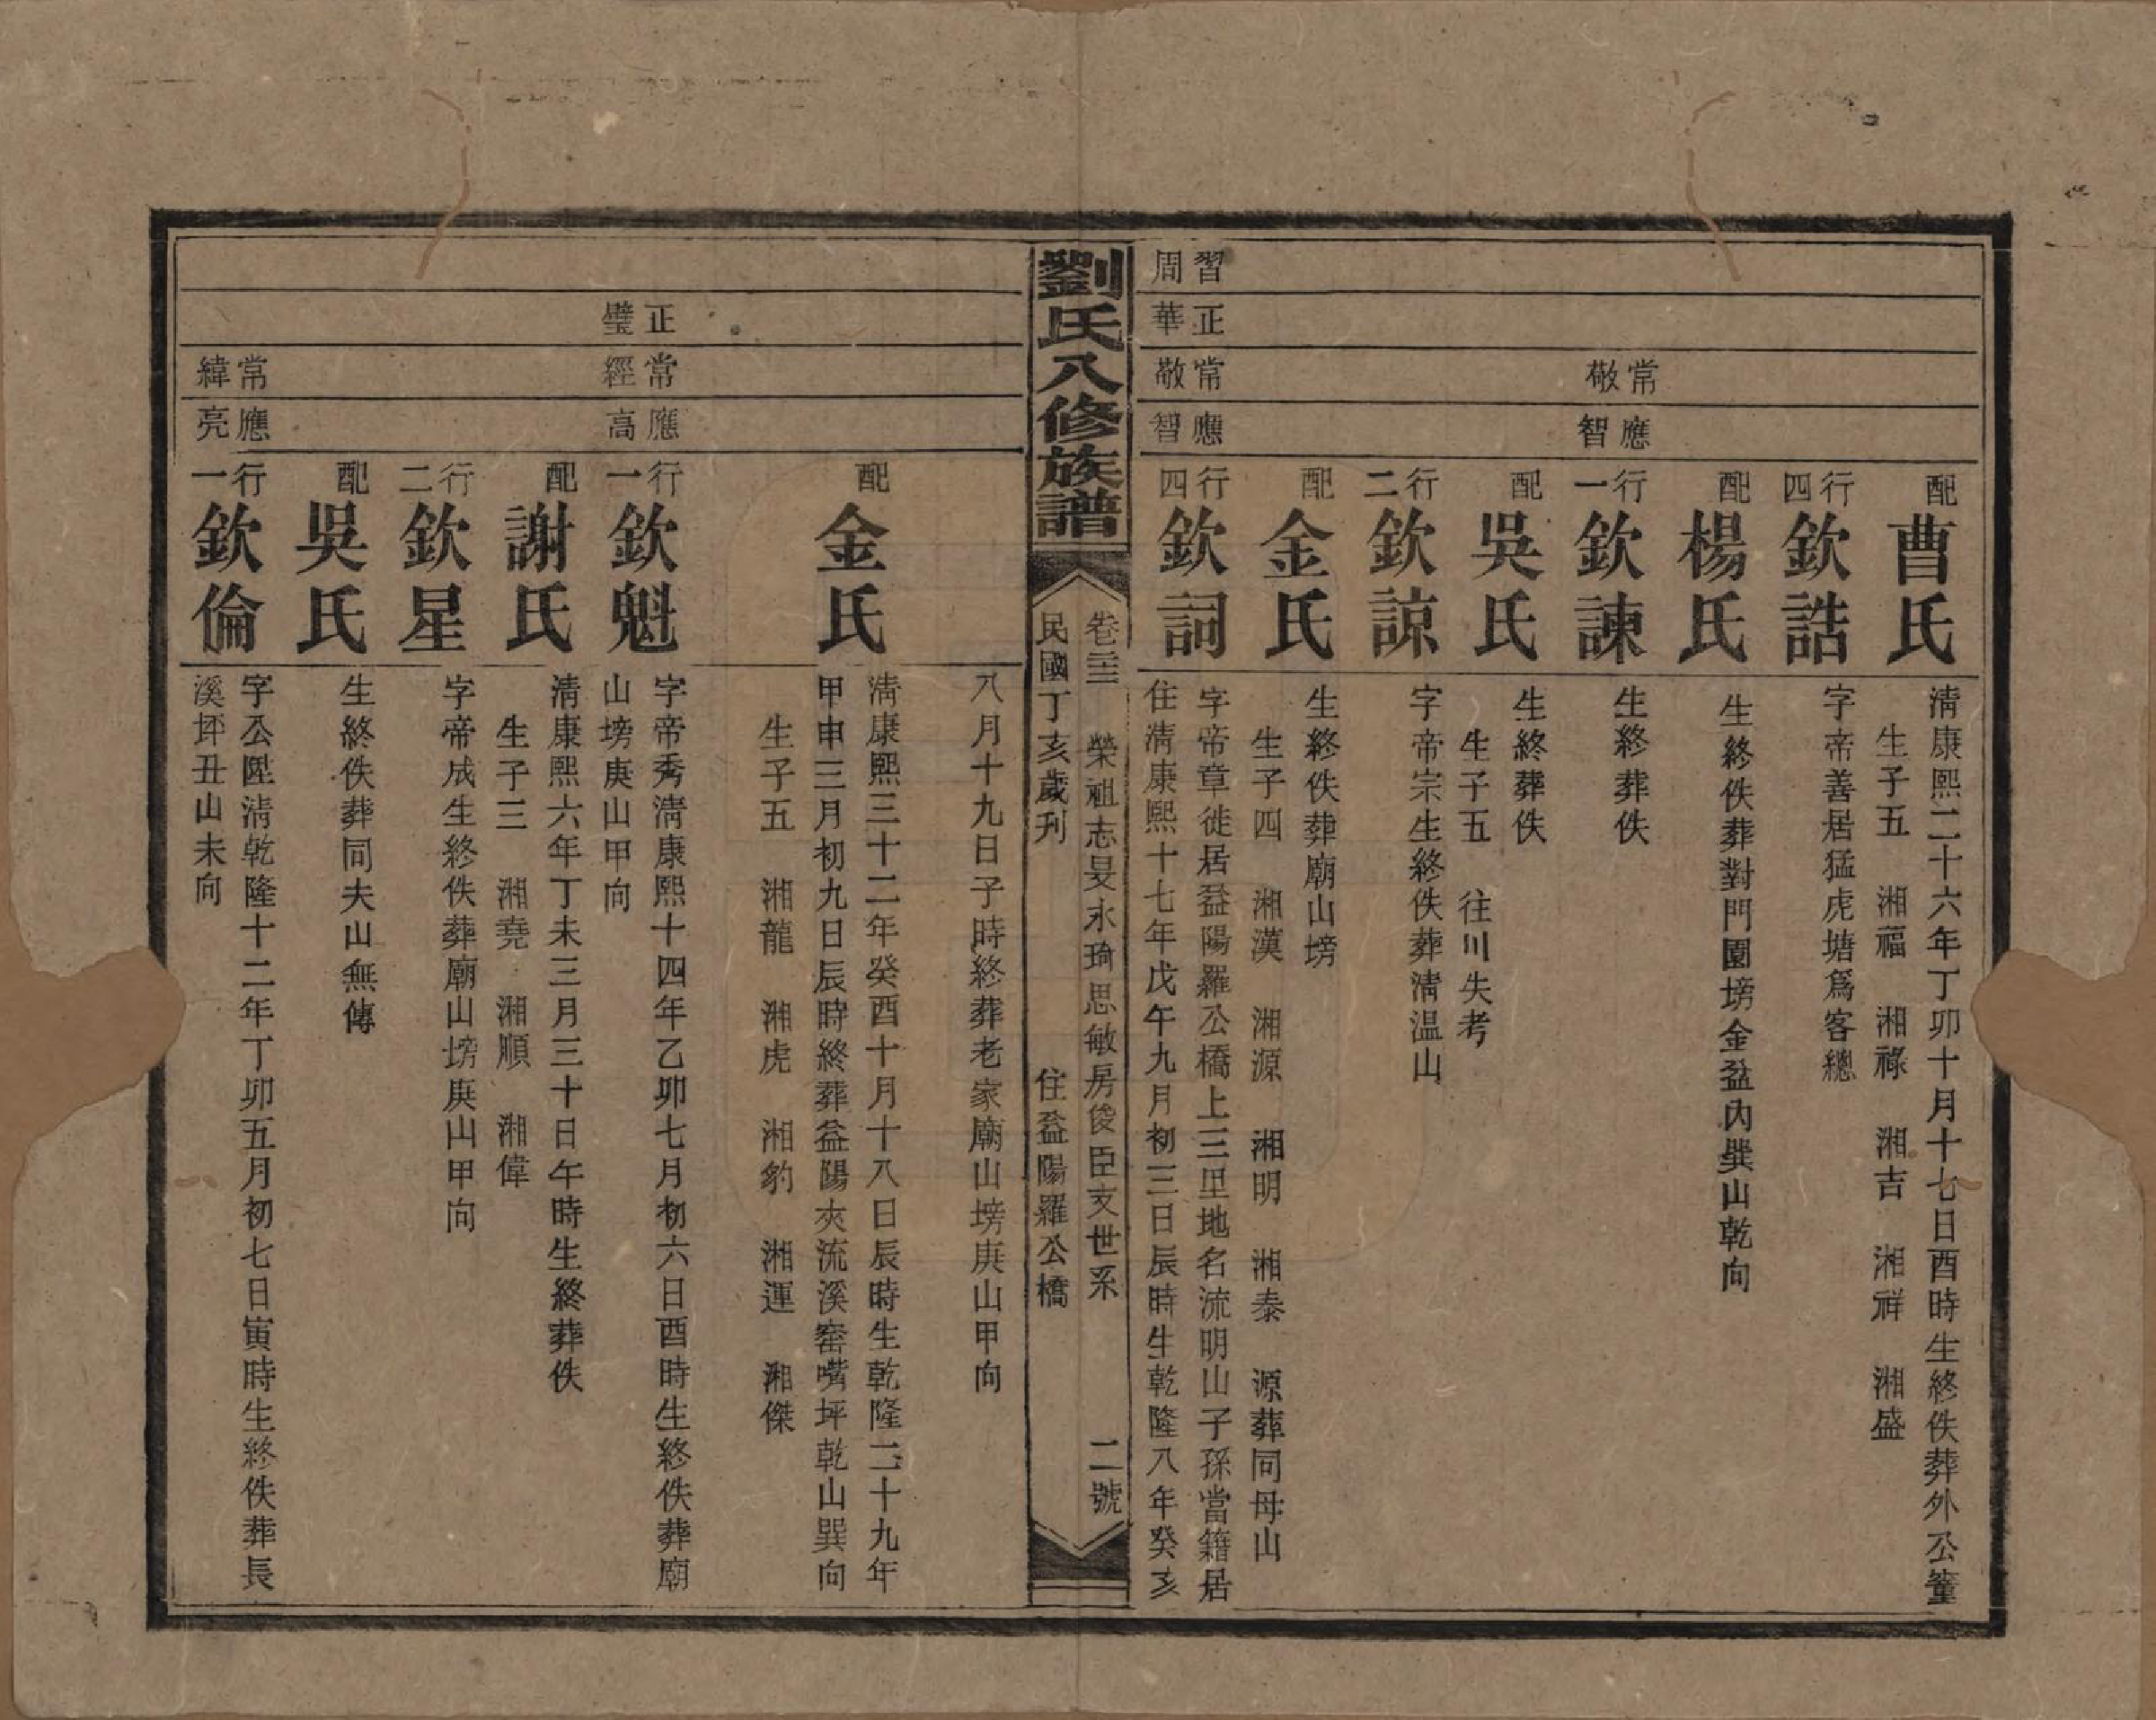 配
曹氏
清康熙二十六年丁卯十月十七日酉時生終佚葬外公
生子五 湘福 湘祿 湘吉 湘祥 湘盛
行四
欽誥
字帝善居猛虎塘為客總
配
楊氏
生終佚葬對門園塝金盆內巽山乾向
常敬
應智
行一
欽諫
生終葬佚
配
吳氏
生終葬佚
生子五 往川失考
行二
欽諒
字帝宗生終佚葬清温山
配
金氏
生終佚葬廟山塝
生子四 湘漢 湘源 湘明 湘泰 源葬同母山
習周
正華
常敬
應智
行四
欽詞
字帝章徙居益陽羅公橋上三里地名流明山子孫當籍居
住清康熙十七年戊午九月初三日辰時生乾隆八年癸亥
劉氏八修族譜
卷三 榮祖志旻永琦思敏房後臣支世系 二號
民國丁亥歲刋 住益陽羅公橋
八月十九日子時終葬老家廟山塝庚山甲向
配
金氏
清康熙三十二年癸酉十月十八日辰時生乾隆二十九年
甲申三月初九日辰時終葬益陽夾流溪窑嘴坪乾山巽向
生子五 湘龍 湘虎 湘豹 湘運 湘傑
正璧
常經
應高
行一
欽魁
字帝秀清康熙十四年乙卯七月初六日酉時生終佚葬廟
山塝庚山甲向
配
謝氏
清康熙六年丁未三月三十日午時生終葬佚
生子三 湘堯 湘順 湘偉
行二
欽星
字帝成生終佚葬廟山塝庚山甲向
配
吳氏
生終佚葬同夫山無傳
常緯
應亮
行一
欽倫
字公陞清乾隆十二年丁卯五月初七日寅時生終佚葬長
溪坪丑山未向